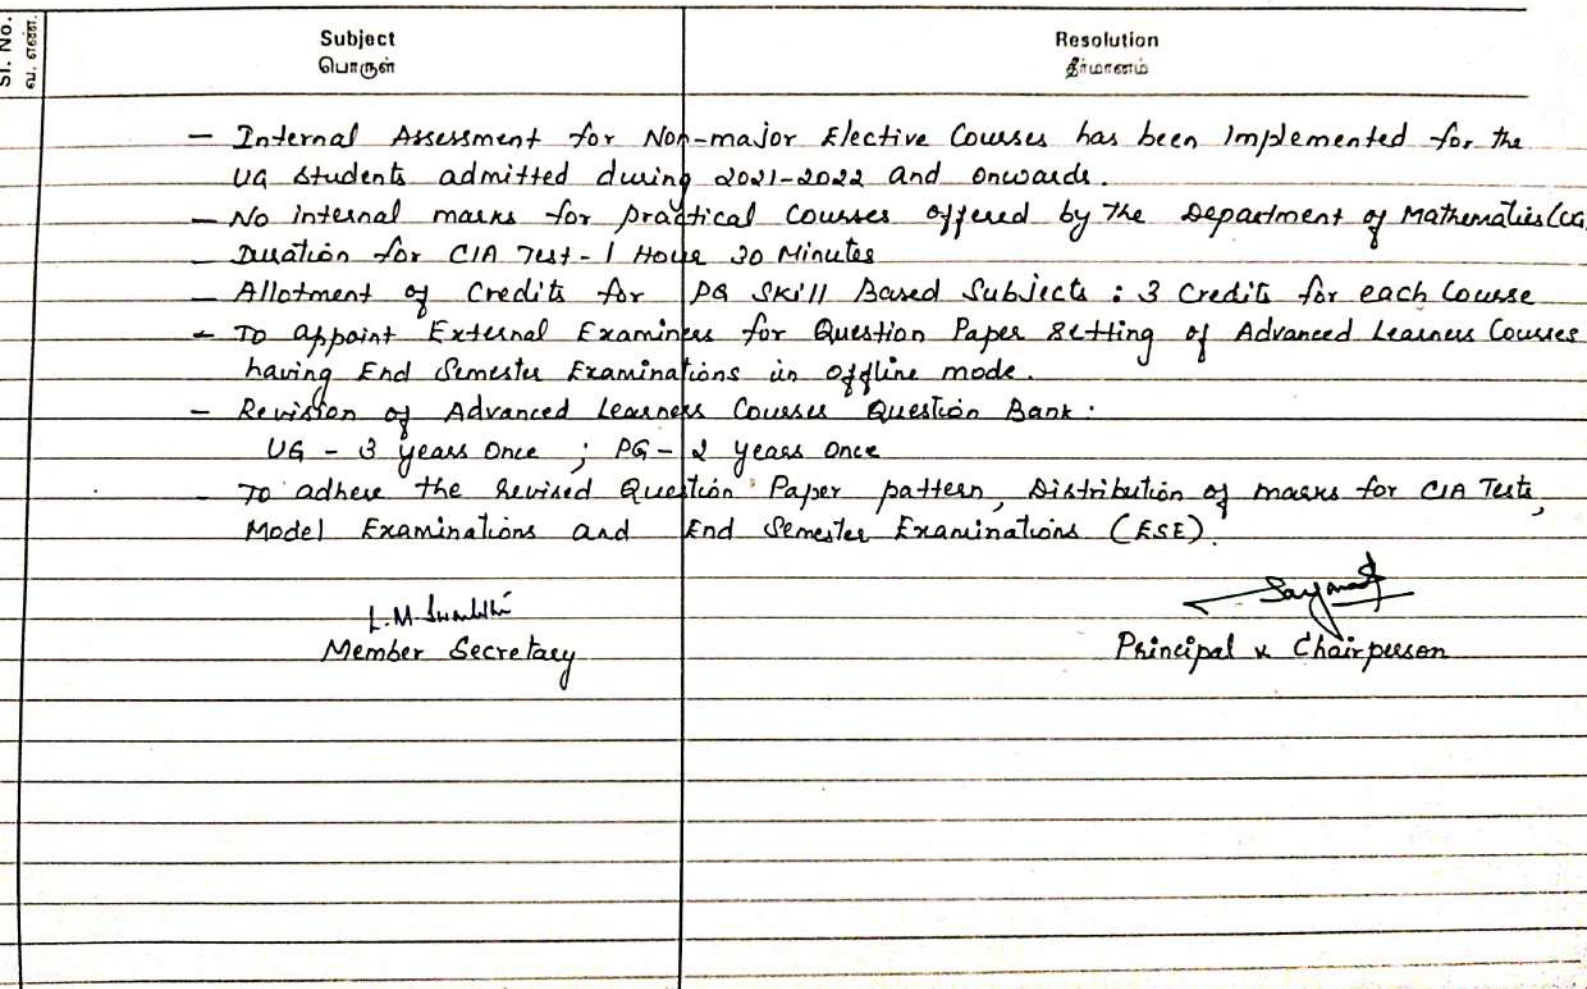 Sl. No.
வ. எண்.
Subject
பொருள்
Resolution
தீர்மானம்
— Internal Assessment for Non-major Elective Courses has been implemented for the
UG students admitted during 2021-2022 and onwards.
— No internal marks for practical courses offered by the Department of Mathematics (UG
— Duration for CIA Test - 1 Hour 30 Minutes
— Allotment of Credits for PG Skill Based Subjects : 3 Credits for each Course
— To appoint External Examiners for Question Paper Setting of Advanced Learners Courses
having End Semester Examinations in offline mode.
— Revision of Advanced Learners Courses Question Bank :
UG - 3 years Once ; PG - 2 years Once
— To adhere the revised Question Paper pattern, Distribution of marks for CIA Tests,
Model Examinations and End Semester Examinations (ESE).
L.M.
Member Secretary
Principal & Chairperson